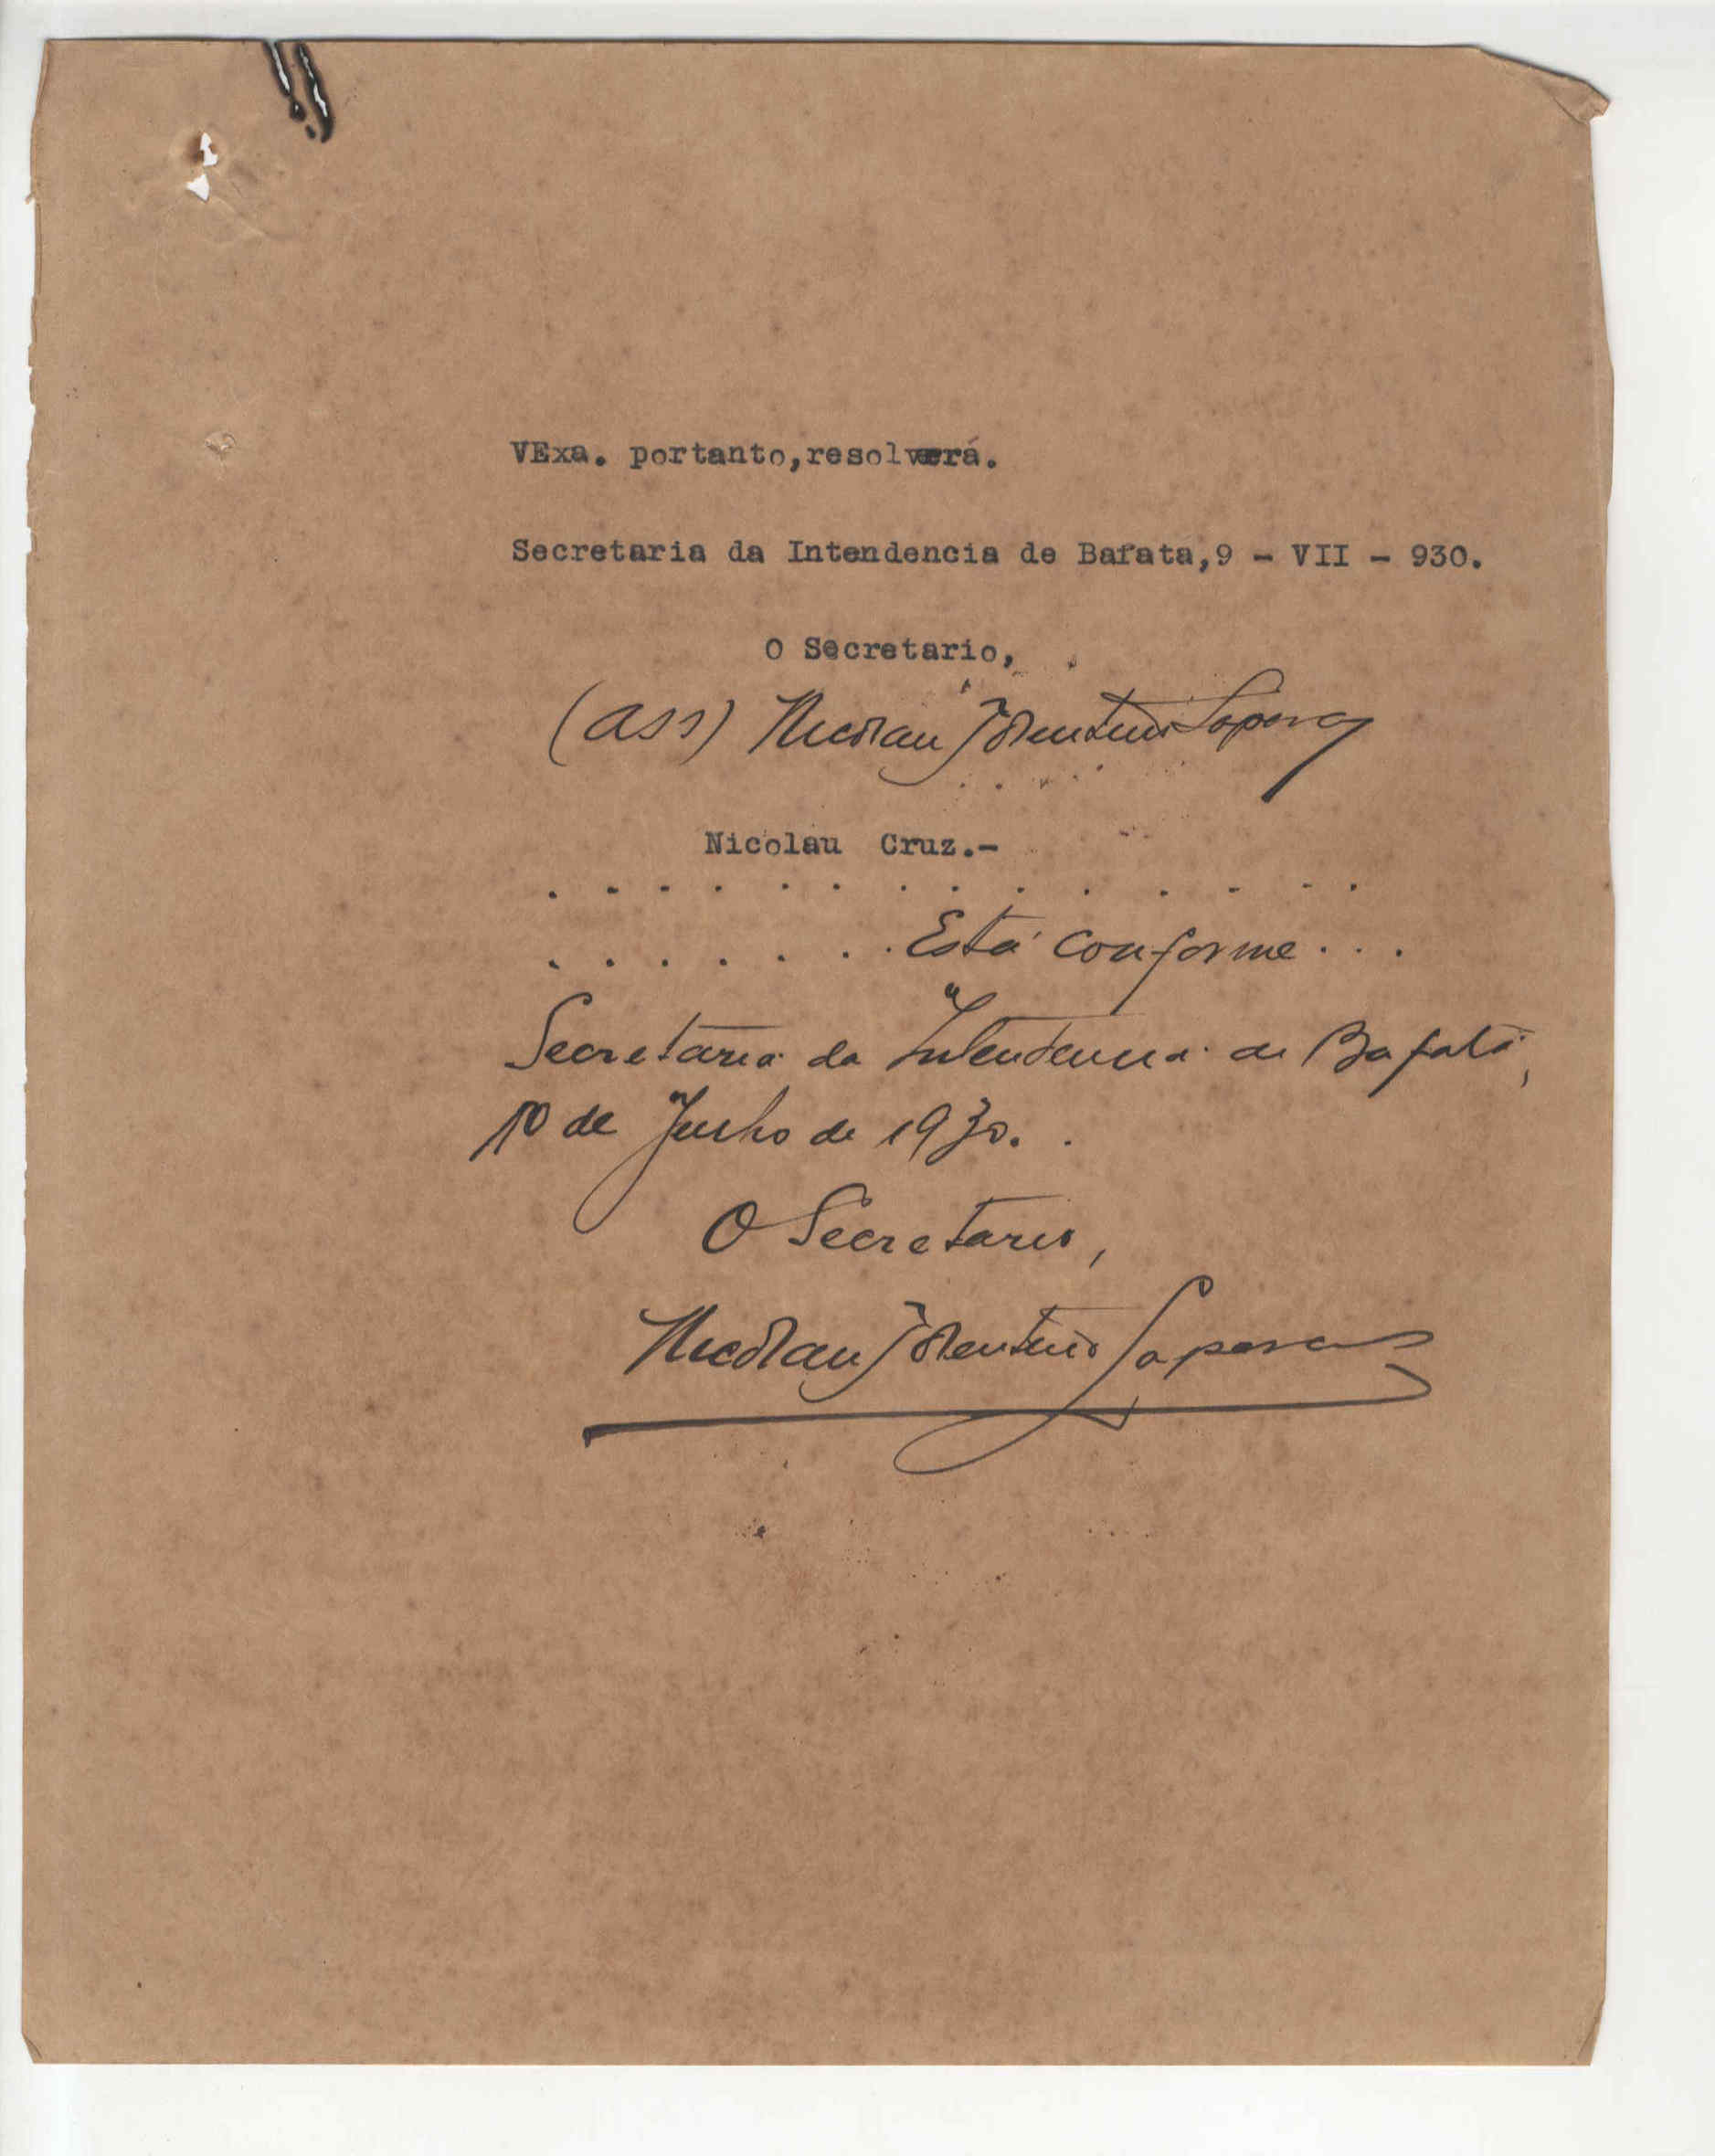 VExa. portanto,resolverá.
Secretaria da Intendencia de Bafata,9 - VII - 930.
O Secretario,
(ass) Nicolau Tolentino
Nicolau Cruz.-
. . . . . . . . . . . . . .
. . . . . . . Está conforme . . .
Secretaria da Intendencia de Bafatá,
10 de Julho de 1930.
O Secretario,
Nicolau Tolentino